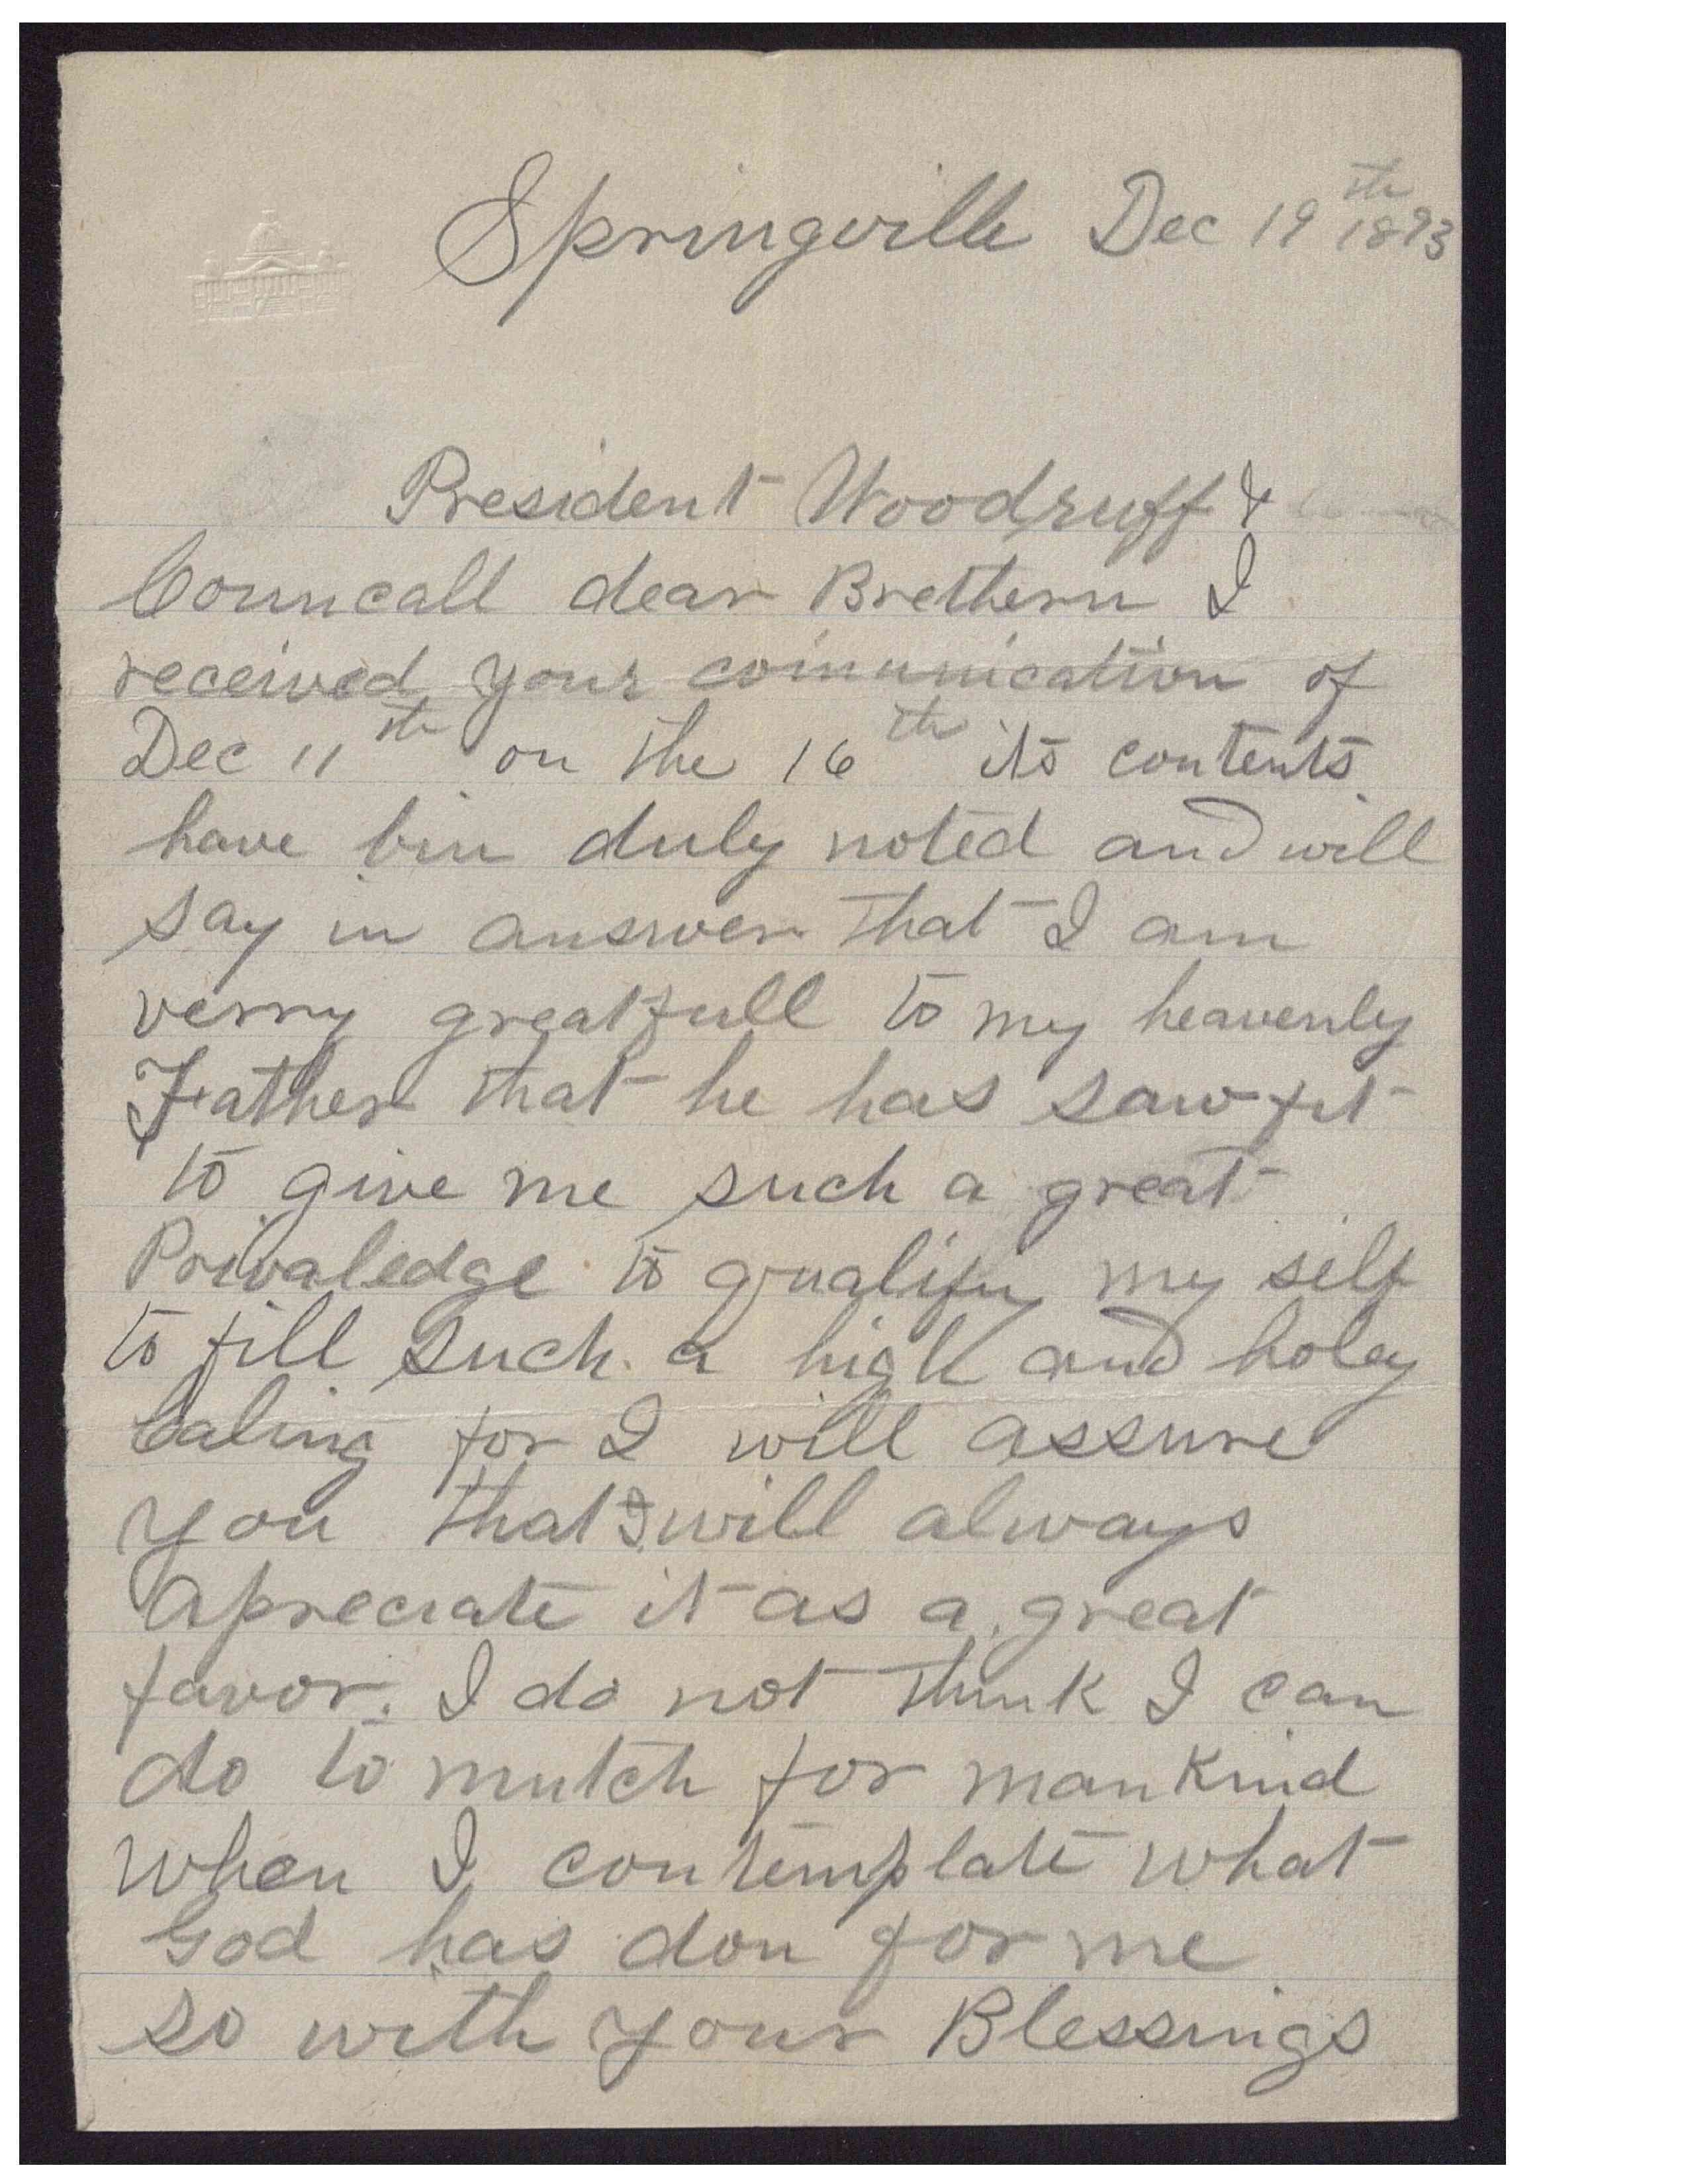 Springville Dec 19th 1893
President Woodruff &
Councall dear Brethern I
received your comunication of
Dec 11th on the 16th its contents
have bin duly noted and will
say in answer that I am
verry greatfull to my heavenly
Father that he has saw fit
to give me such a great
Privaledge to qualify my self
to fill such a high and holey
Caling for I will assure
you that I will always
apreciate it as a great
favor. I do not think I can
do to mutch for mankind
when I contemplate what
God has don for me
so with your Blessings